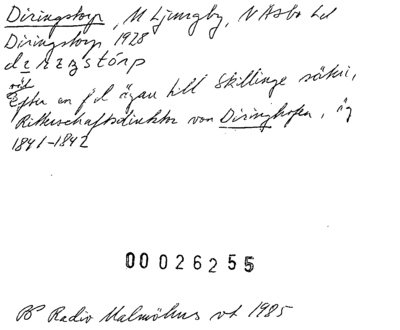 Diringstorp, N Ljungby, N Åsbo hd
Diringstorp, 1928
Efter en f d ägare till Skillinge säteri,
Ritterschaftsdirektor von Diringhofen, äg
1841-1842
00026255
Radio Malmöhus vt 1985